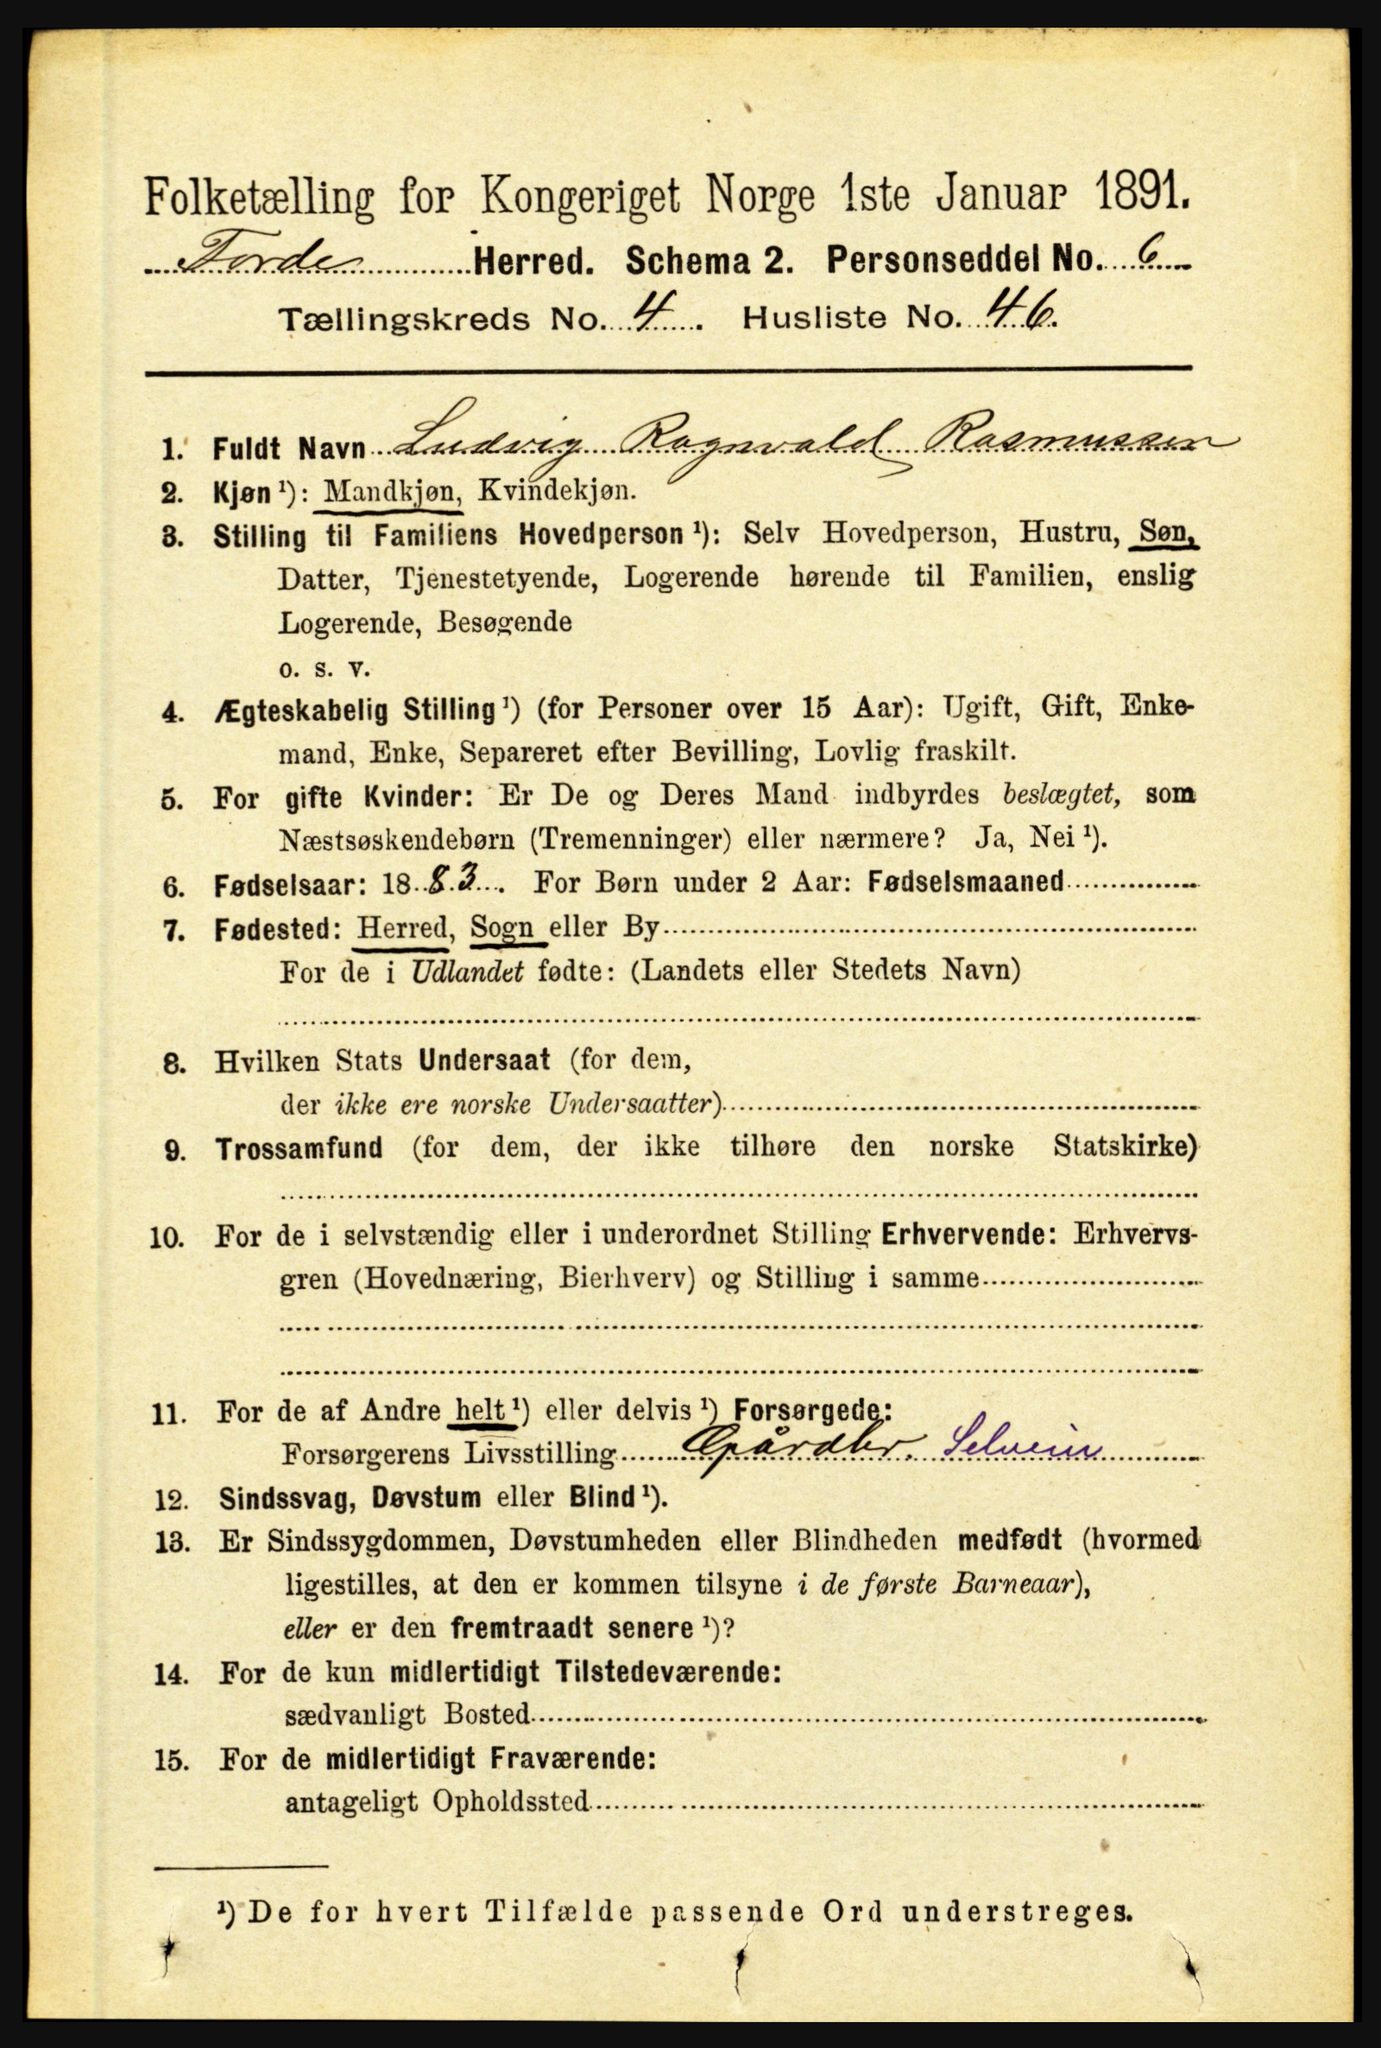 Folketælling for Kongeriget Norge 1ste Januar 1891.
Førde Herred. Schema 2. Personseddel No. 6
Tællingskreds No. 4. Husliste No. 46.
1. Fuldt Navn Ludvig Ragnvald Rasmussen
2. Kjøn ¹): Mandkjøn, Kvindekjøn.
3. Stilling til Familiens Hovedperson ¹): Selv Hovedperson, Hustru, Søn,
Datter, Tjenestetyende, Logerende hørende til Familien, enslig
Logerende, Besøgende
o. s. v.
4. Ægteskabelig Stilling ¹) (for Personer over 15 Aar): Ugift, Gift, Enke-
mand, Enke, Separeret efter Bevilling, Lovlig fraskilt.
5. For gifte Kvinder: Er De og Deres Mand indbyrdes beslægtet, som
Næstsøskendebørn (Tremenninger) eller nærmere? Ja, Nei ¹).
6. Fødselsaar: 1883. For Børn under 2 Aar: Fødselsmaaned
7. Fødested: Herred, Sogn eller By
For de i Udlandet fødte: (Landets eller Stedets Navn)
8. Hvilken Stats Undersaat (for dem,
der ikke ere norske Undersaatter)
9. Trossamfund (for dem, der ikke tilhøre den norske Statskirke)
10. For de i selvstændig eller i underordnet Stilling Erhvervende: Erhvervs-
gren (Hovednæring, Bierhverv) og Stilling i samme
11. For de af Andre helt ¹) eller delvis ¹) Forsørgede:
Forsørgerens Livsstilling Gårdbr. Selveier
12. Sindssvag, Døvstum eller Blind ¹).
13. Er Sindssygdommen, Døvstumheden eller Blindheden medfødt (hvormed
ligestilles, at den er kommen tilsyne i de første Barneaar),
eller er den fremtraadt senere ¹)?
14. For de kun midlertidigt Tilstedeværende:
sædvanligt Bosted
15. For de midlertidigt Fraværende:
antageligt Opholdssted
¹) De for hvert Tilfælde passende Ord understreges.